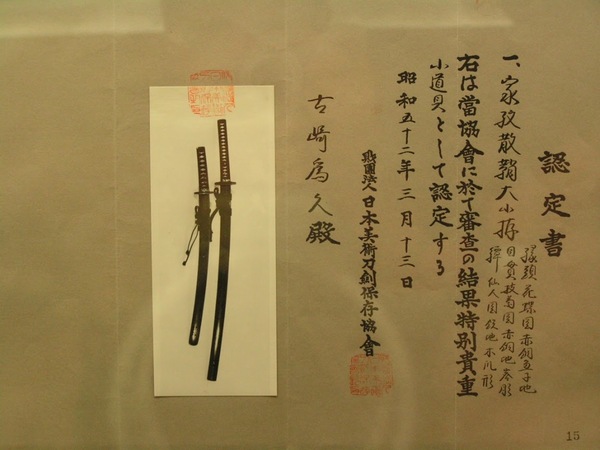 認定書
一、家紋散鞘大小拵
縁頭花蝶図赤銅魚子地
目貫枝菊図赤銅地容彫
鐔仙人図鉄地木瓜形
右は當協會に於て審査の結果特別貴重
小道具として認定する
昭和五十二年三月十三日
財團法人日本美術刀剣保存協會
古崎為久殿
15